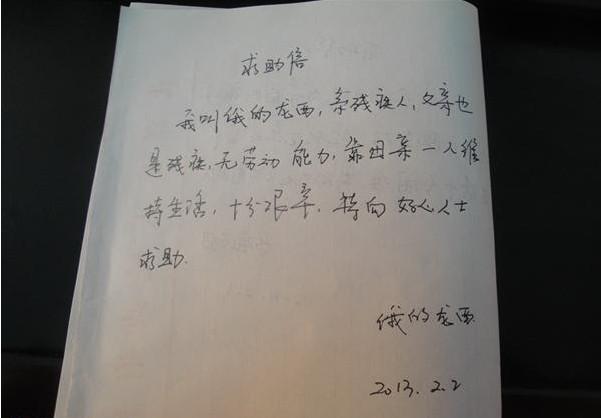 求助信
我叫俄的龙西,系残疾人,父亲也
是残疾,无劳动能力,靠母亲一人维
持生活,十分艰辛,特向好心人士
求助.
俄的龙西
2013.2.2